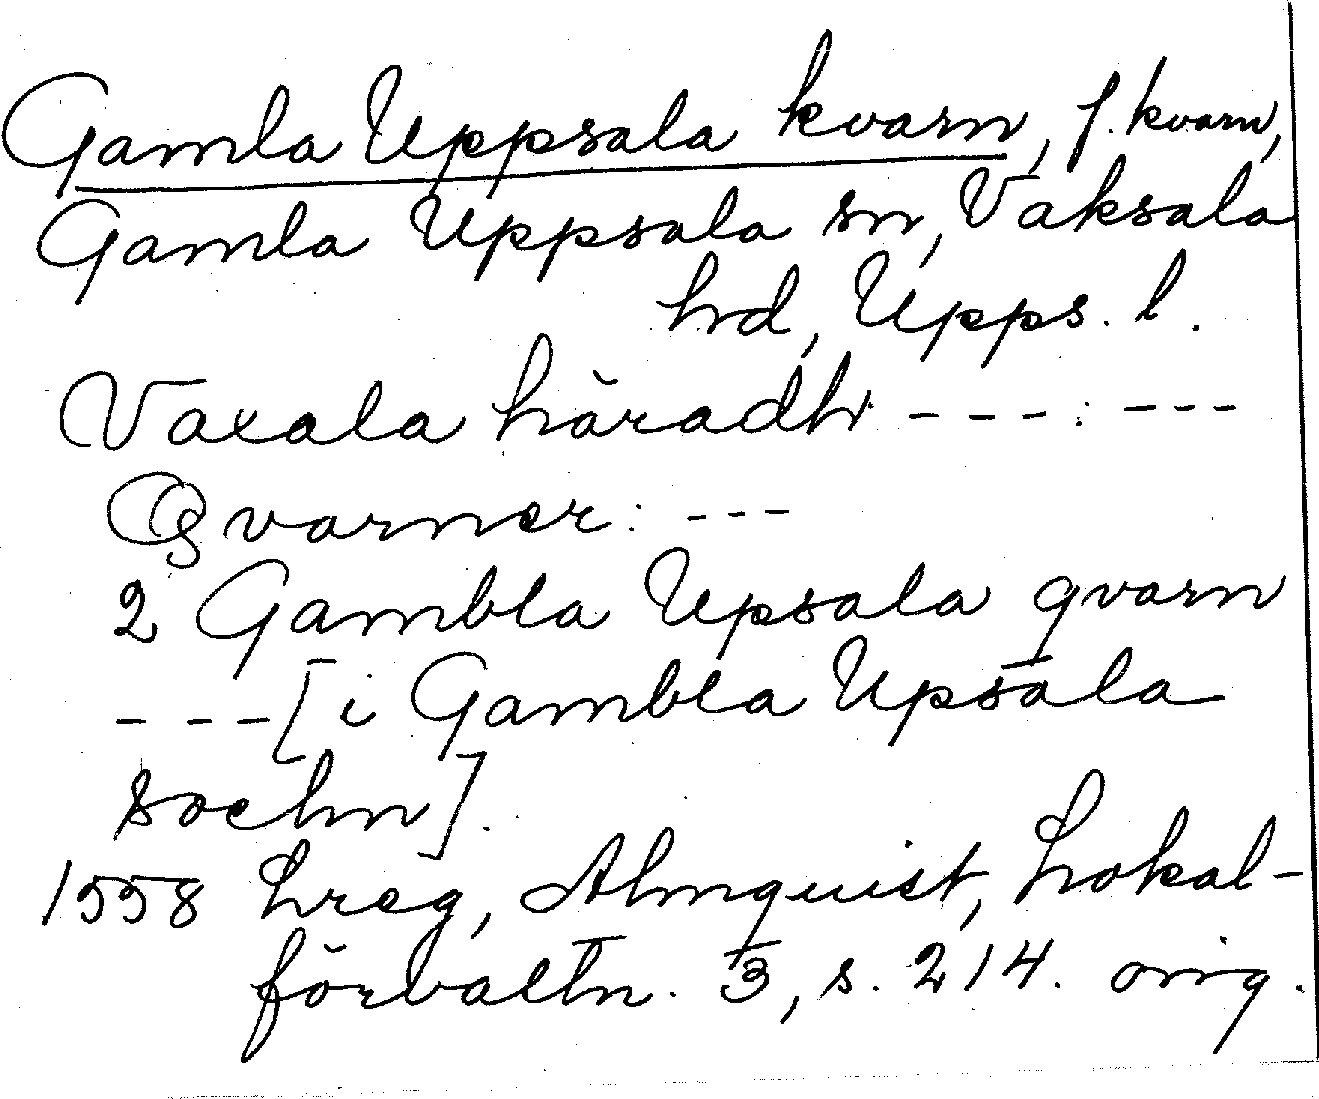 Gamla Uppsala kvarn, f. kvarn,
Gamla Uppsala sn, Vaksala
hd, Upps. l.
Vaxala häradh - - - : - - -
Qvarner: - - -
2 Gambla Upsala qvarn
- - - [i Gambla Upsala
sochn].
1558 Lreg, Almquist, Lokal-
förvaltn. 3, s. 214. orig.